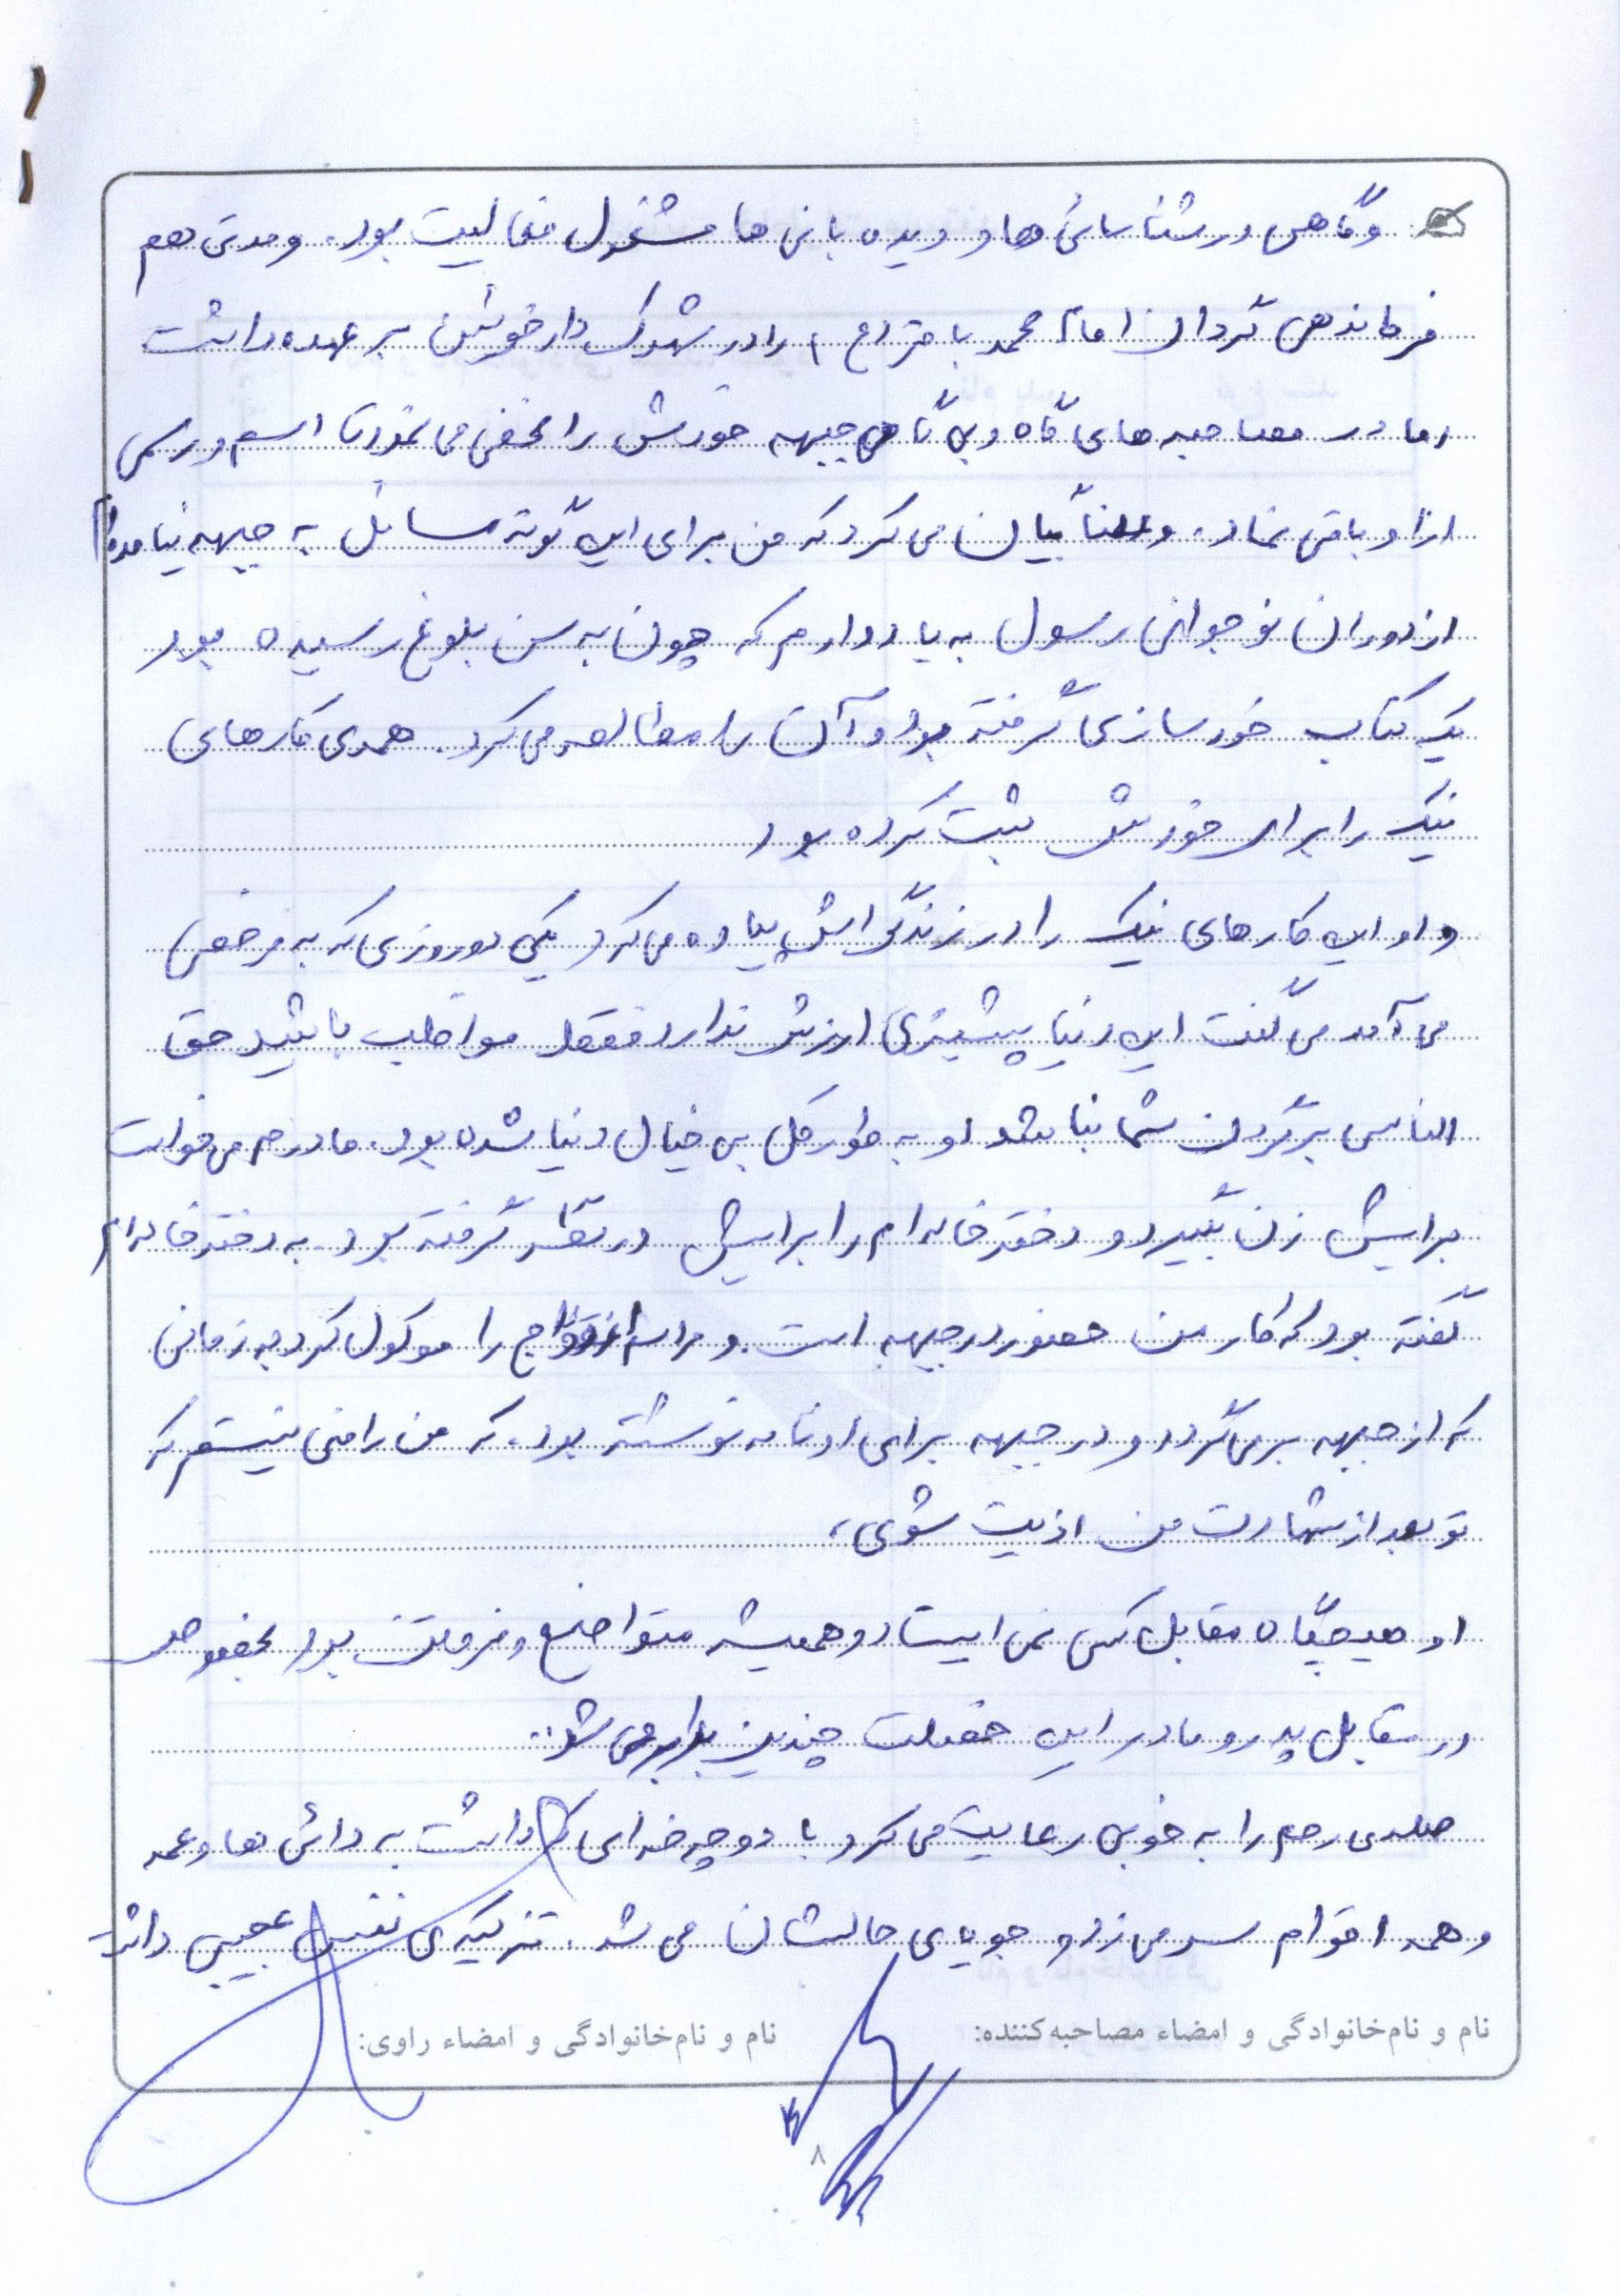 وگاهی در شناسائی ها و دیده بانی ها مشغول فعالیت بود. و مدتی هم
فرماندهی گردان امام محمد باقر (ع) را در شهرک دارخوئین بر عهده داشت
اما در مصاحبه های گاه و بی گاهی جبهه خودش را مخفی می نمود تا اسم و رسمی
از او باقی نماند. و بیان می کرد که من برای این گونه مسائل به جبهه نیامده ام
از دوران نوجوانی رسول به یاد دارم که چون به سن بلوغ رسیده بود
یک کتاب خودسازی گرفته بود و آن را مطالعه می کرد. همه ی کارهای
نیک را برای خودش ثبت کرده بود
و او این کارهای نیک را در زندگی اش پیاده می کرد یکی دو روزی که به مرخصی
می آمد می گفت این دنیا پشیزی ارزش ندارد فقط مواظب باشید حق
الناس بر گردن شما نباشد او به طور کل بی خیال دنیا شده بود. مادرم می خواست
برایش زن بگیرد و دختر خاله ام را برایش در نظر گرفته بود. به دختر خاله ام
گفته بود که کار من حضور در جبهه است. و مراسم ازدواج را موکول کرد به زمانی
که از جبهه برمی گردد و در جبهه برای او نامه نوشته بود. که من راضی نیستم که
تو بعد از شهادت من اذیت شوی،
او هیچگاه مقابل کسی نمی ایستاد و همیشه متواضع و فروتن بود بخصوص
در مقابل پدر و مادر این خصلت چندین برابر می شد..
صله ی رحم را به خوبی رعایت می کرد با دوچرخه ای که داشت به دائی ها و عمه
و همه اقوام سر می زد و جویای حالشان می شد. تزکیه ی نفس عجیبی داشت
نام و نام خانوادگی و امضاء مصاحبه کننده: نام و نام خانوادگی و امضاء راوی:
۸